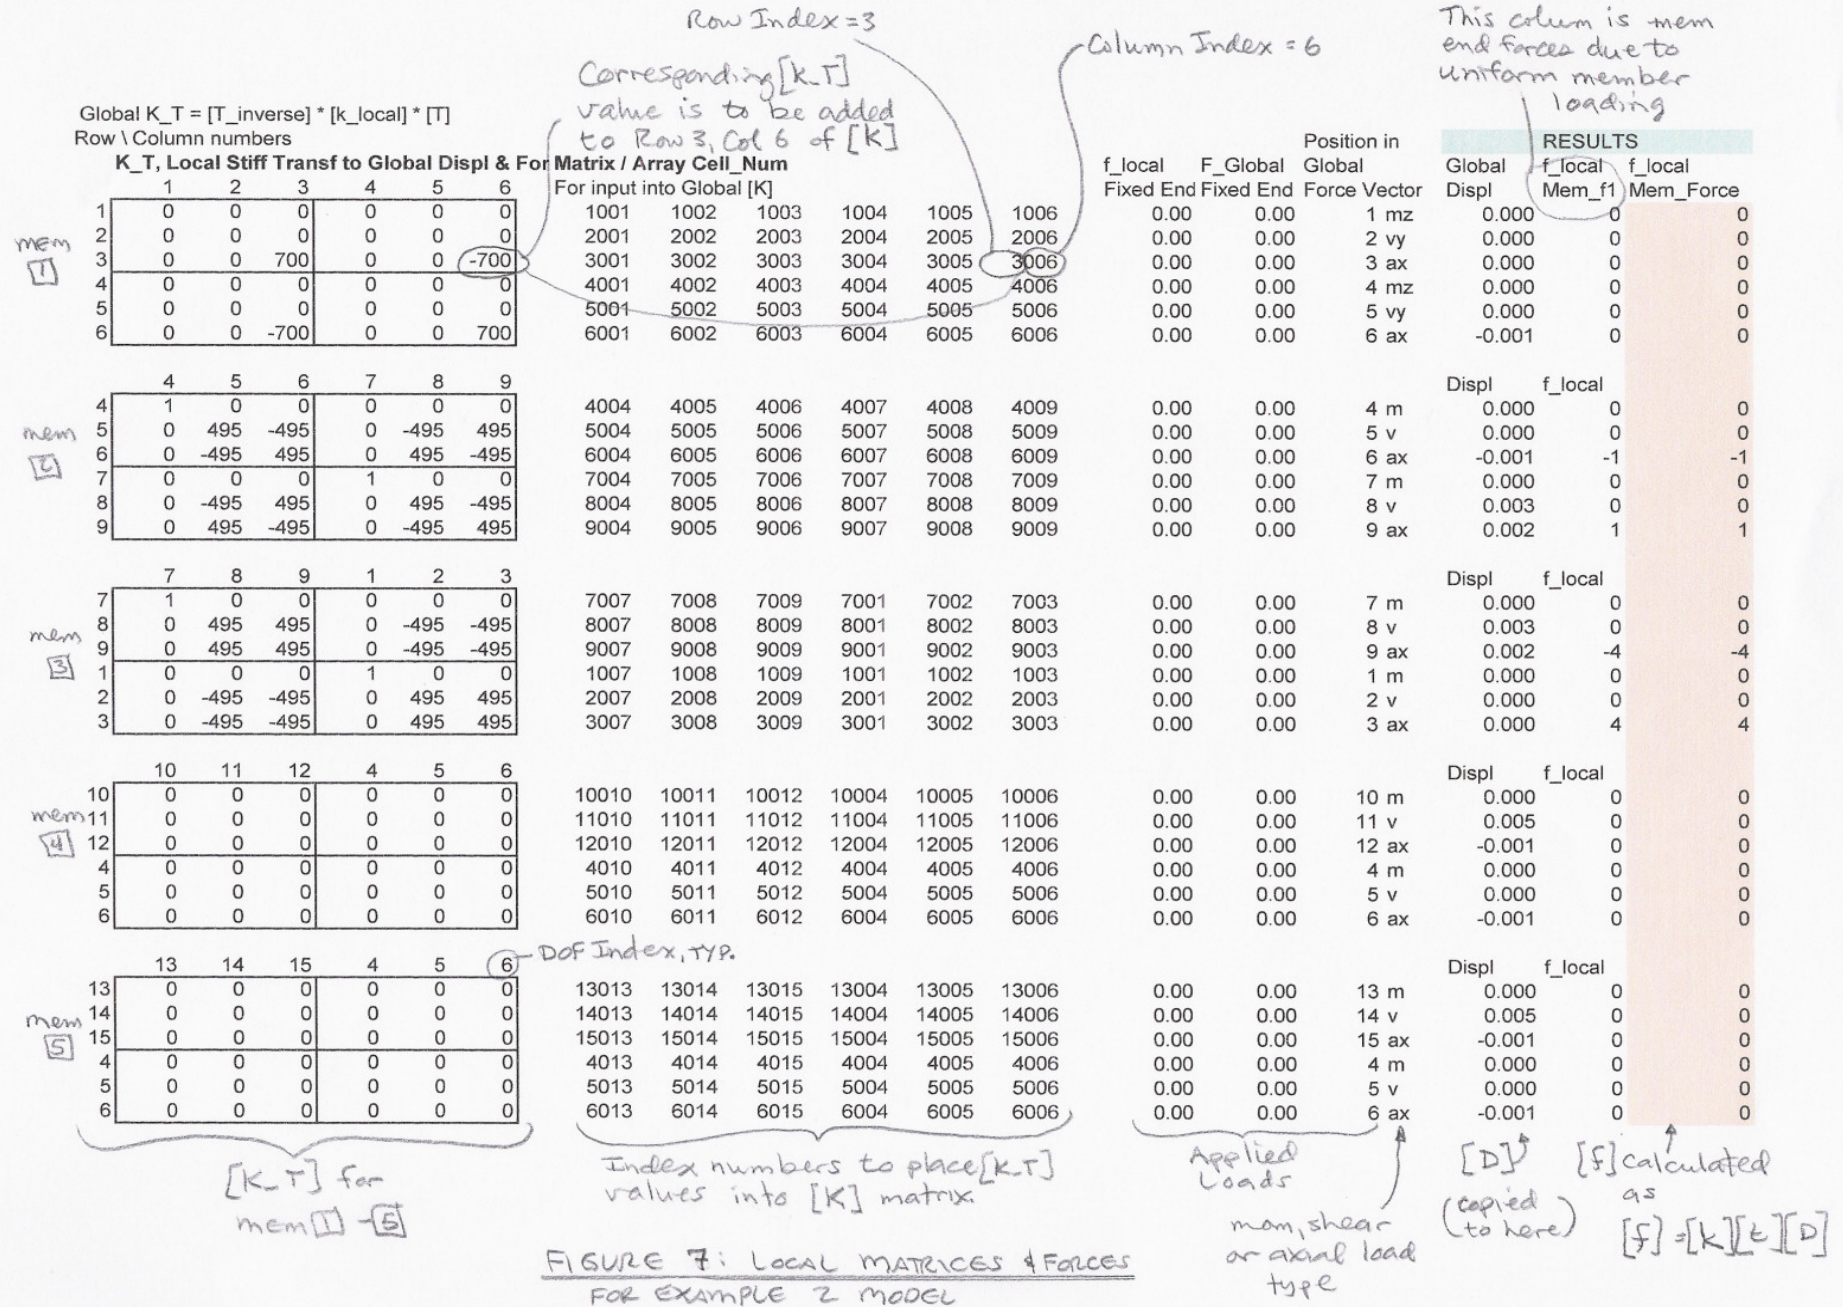 Row Index = 3
Column Index = 6
This colum is mem
end forces due to
uniform member
loading
Corresponding [K_T]
value is to be added
to Row 3, Col 6 of [K]
Global K_T = [T_inverse] * [k_local] * [T]
Row \ Column numbers
Position in RESULTS
K_T, Local Stiff Transf to Global Displ & For Matrix / Array Cell_Num f_local F_Global Global Global f_local f_local
1 2 3 4 5 6 For input into Global [K] Fixed End Fixed End Force Vector Displ Mem_f1 Mem_Force
mem [1]
1 0 0 0 0 0 0 1001 1002 1003 1004 1005 1006 0.00 0.00 1 mz 0.000 0 0
2 0 0 0 0 0 0 2001 2002 2003 2004 2005 2006 0.00 0.00 2 vy 0.000 0 0
3 0 0 700 0 0 -700 3001 3002 3003 3004 3005 3006 0.00 0.00 3 ax 0.000 0 0
4 0 0 0 0 0 0 4001 4002 4003 4004 4005 4006 0.00 0.00 4 mz 0.000 0 0
5 0 0 0 0 0 0 5001 5002 5003 5004 5005 5006 0.00 0.00 5 vy 0.000 0 0
6 0 0 -700 0 0 700 6001 6002 6003 6004 6005 6006 0.00 0.00 6 ax -0.001 0 0
4 5 6 7 8 9 Displ f_local
mem [2]
4 1 0 0 0 0 0 4004 4005 4006 4007 4008 4009 0.00 0.00 4 m 0.000 0 0
5 0 495 -495 0 -495 495 5004 5005 5006 5007 5008 5009 0.00 0.00 5 v 0.000 0 0
6 0 -495 495 0 495 -495 6004 6005 6006 6007 6008 6009 0.00 0.00 6 ax -0.001 -1 -1
7 0 0 0 1 0 0 7004 7005 7006 7007 7008 7009 0.00 0.00 7 m 0.000 0 0
8 0 -495 495 0 495 -495 8004 8005 8006 8007 8008 8009 0.00 0.00 8 v 0.003 0 0
9 0 495 -495 0 -495 495 9004 9005 9006 9007 9008 9009 0.00 0.00 9 ax 0.002 1 1
7 8 9 1 2 3 Displ f_local
mem [3]
7 1 0 0 0 0 0 7007 7008 7009 7001 7002 7003 0.00 0.00 7 m 0.000 0 0
8 0 495 495 0 -495 -495 8007 8008 8009 8001 8002 8003 0.00 0.00 8 v 0.003 0 0
9 0 495 495 0 -495 -495 9007 9008 9009 9001 9002 9003 0.00 0.00 9 ax 0.002 -4 -4
1 0 0 0 1 0 0 1007 1008 1009 1001 1002 1003 0.00 0.00 1 m 0.000 0 0
2 0 -495 -495 0 495 495 2007 2008 2009 2001 2002 2003 0.00 0.00 2 v 0.000 0 0
3 0 -495 -495 0 495 495 3007 3008 3009 3001 3002 3003 0.00 0.00 3 ax 0.000 4 4
10 11 12 4 5 6 Displ f_local
mem [4]
10 0 0 0 0 0 0 10010 10011 10012 10004 10005 10006 0.00 0.00 10 m 0.000 0 0
11 0 0 0 0 0 0 11010 11011 11012 11004 11005 11006 0.00 0.00 11 v 0.005 0 0
12 0 0 0 0 0 0 12010 12011 12012 12004 12005 12006 0.00 0.00 12 ax -0.001 0 0
4 0 0 0 0 0 0 4010 4011 4012 4004 4005 4006 0.00 0.00 4 m 0.000 0 0
5 0 0 0 0 0 0 5010 5011 5012 5004 5005 5006 0.00 0.00 5 v 0.000 0 0
6 0 0 0 0 0 0 6010 6011 6012 6004 6005 6006 0.00 0.00 6 ax -0.001 0 0
13 14 15 4 5 6 DOF Index, TYP. Displ f_local
mem [5]
13 0 0 0 0 0 0 13013 13014 13015 13004 13005 13006 0.00 0.00 13 m 0.000 0 0
14 0 0 0 0 0 0 14013 14014 14015 14004 14005 14006 0.00 0.00 14 v 0.005 0 0
15 0 0 0 0 0 0 15013 15014 15015 15004 15005 15006 0.00 0.00 15 ax -0.001 0 0
4 0 0 0 0 0 0 4013 4014 4015 4004 4005 4006 0.00 0.00 4 m 0.000 0 0
5 0 0 0 0 0 0 5013 5014 5015 5004 5005 5006 0.00 0.00 5 v 0.000 0 0
6 0 0 0 0 0 0 6013 6014 6015 6004 6005 6006 0.00 0.00 6 ax -0.001 0 0
[K_T] for
mem [1] - [5]
Index numbers to place [K_T]
values into [K] matrix.
Applied
Loads
mom, shear
or axial load
type
[D]
(copied
to here)
[f] calculated
as
[f] = [k][t][D]
FIGURE 7: LOCAL MATRICES & FORCES
FOR EXAMPLE 2 MODEL